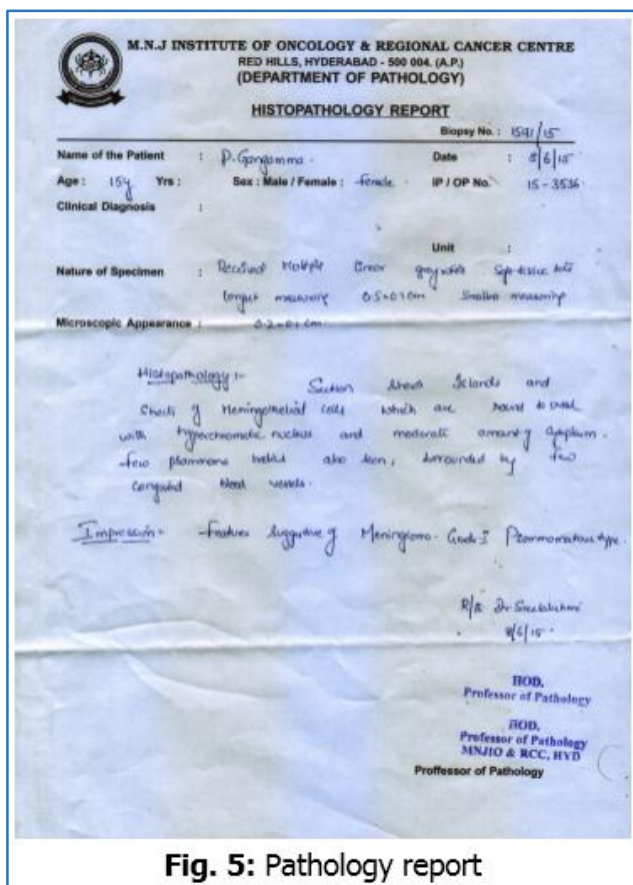 M.N.J INSTITUTE OF ONCOLOGY & REGIONAL CANCER CENTRE
RED HILLS, HYDERABAD - 500 004. (A.P.)
(DEPARTMENT OF PATHOLOGY)
HISTOPATHOLOGY REPORT
Biopsy No. : 1591/15
Name of the Patient : P. Gangamma. Date : 8/6/15
Age : 15y Yrs : Sex : Male / Female : female. IP / OP No. 15-3536
Clinical Diagnosis :
Unit :
Nature of Specimen : Received Multiple grey white soft tissue bits
largest measuring 0.5x0.1cm smallest measuring
Microscopic Appearance : 0.2x0.1cm.
Histopathology :-
Section shows Islands and
Sheets of Meningothelial cells which are round to oval
with hyperchromatic nucleus and moderate amount of cytoplasm.
few psammoma bodies also seen, surrounded by few
congested blood vessels.
Impression:- Features suggestive of Meningioma- Grade-I Psammomatous type.
Dr Sreelakshmi
8/6/15.
HOD,
Professor of Pathology
HOD,
Professor of Pathology
MNJIO & RCC, HYD
Proffessor of Pathology
Fig. 5: Pathology report